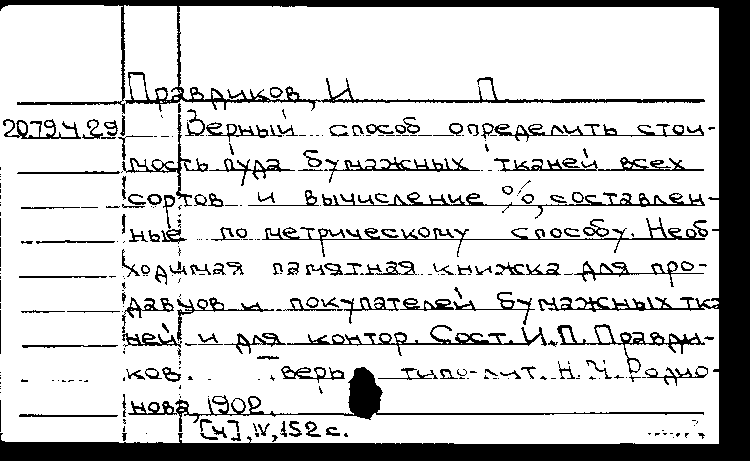 Правдиков, И П
2079.4.29 Верный способ определить стои-
мость пуда бумажных тканей всех
сортов и вычисление %, составлен-
ные по метрическому способу. Необ-
ходимая памятная книжка для про-
давцов и покупателей бумажных тка
ней и для контор. Сост. И.П. Правди-
ков. верь типо-лит. Н.Ч. Родио-
нова, 1902.
[4], IV, 152 с.